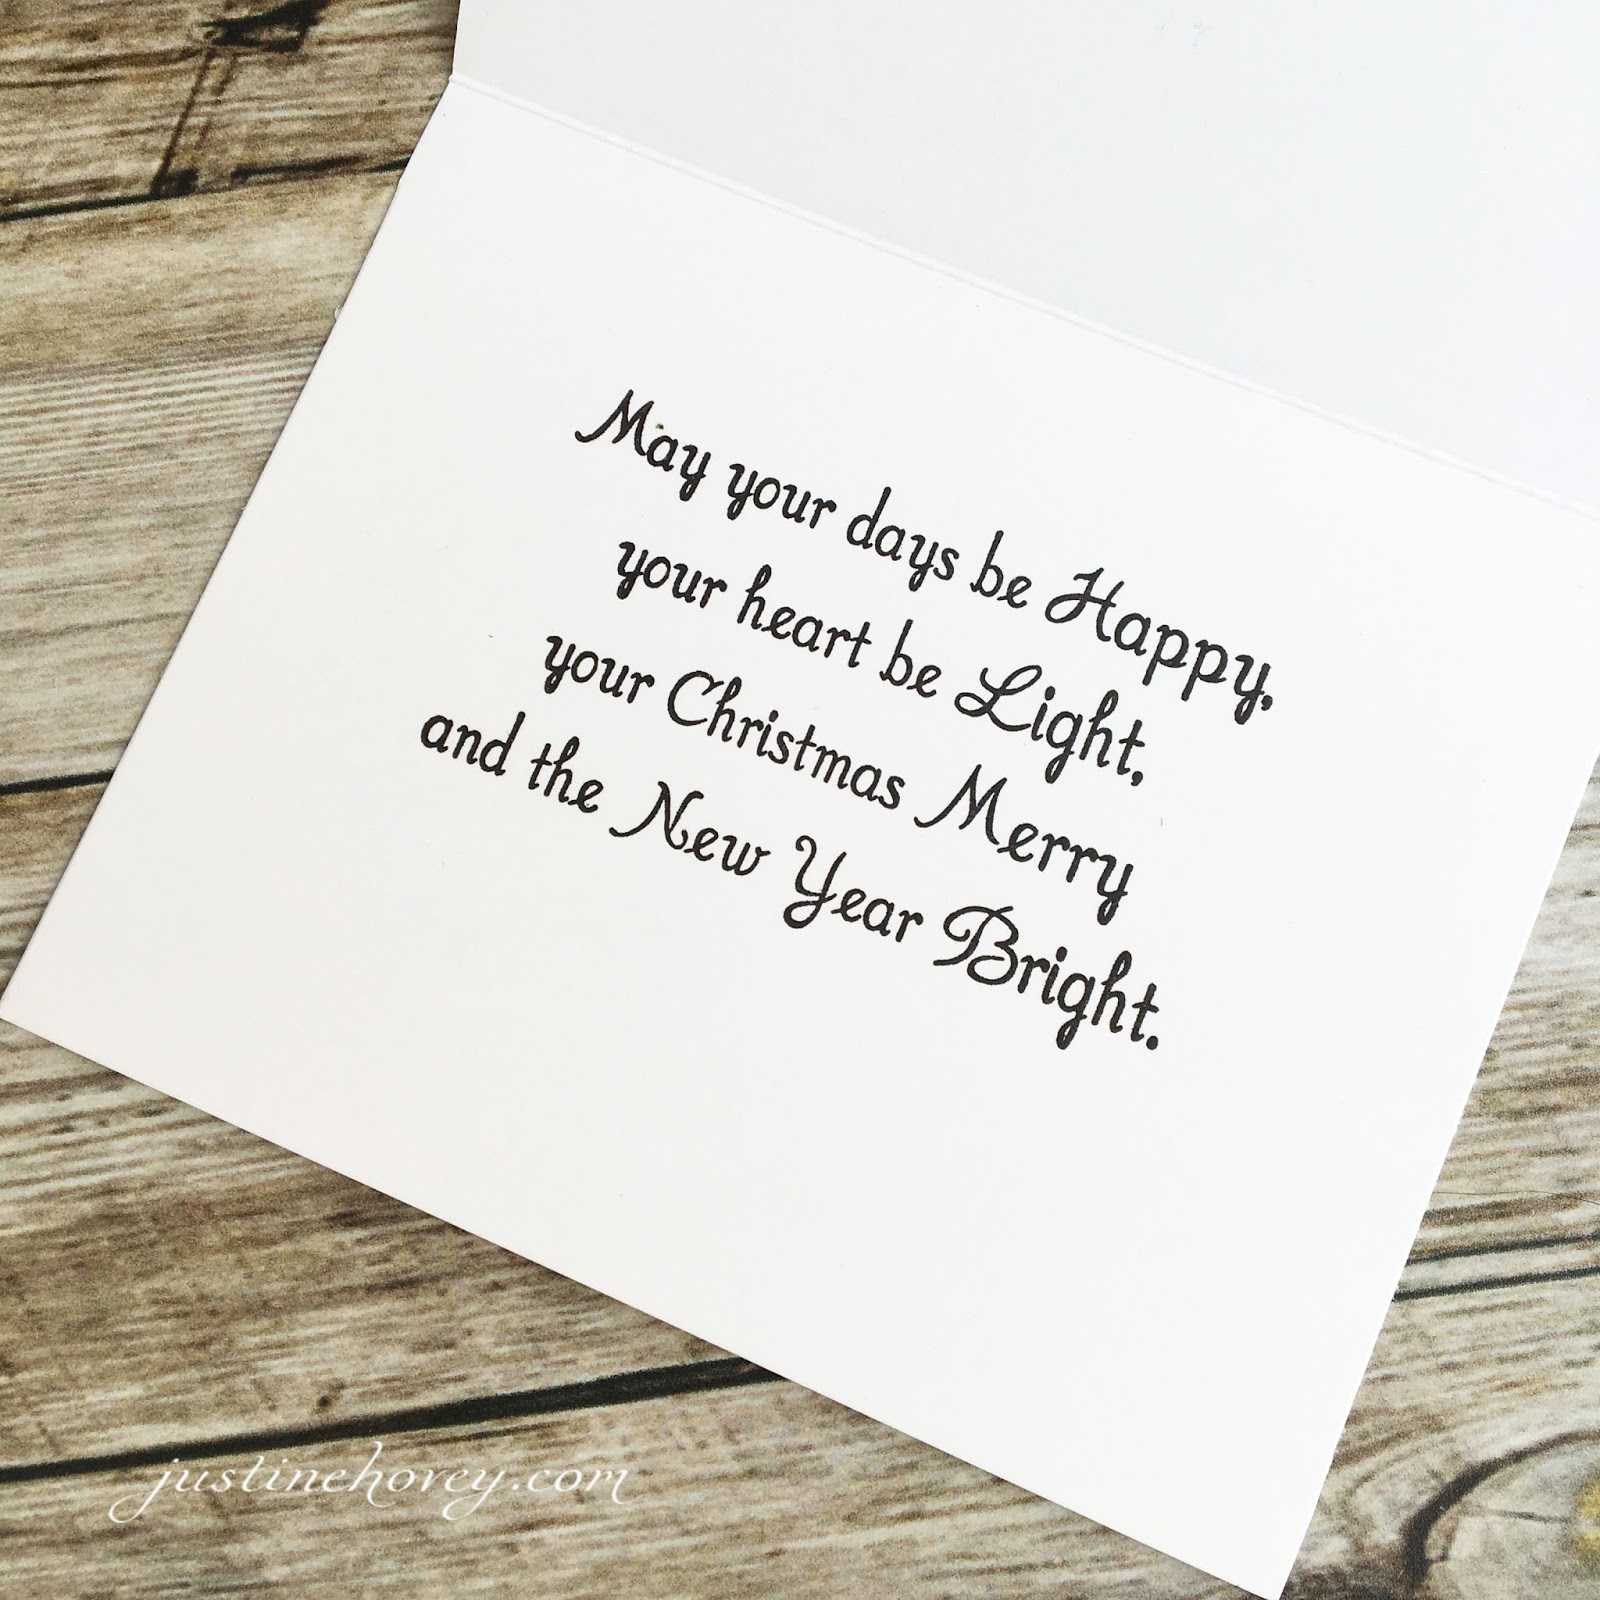 May your days be Happy,
your heart be Light,
your Christmas Merry
and the New Year Bright.
justinehovey.com